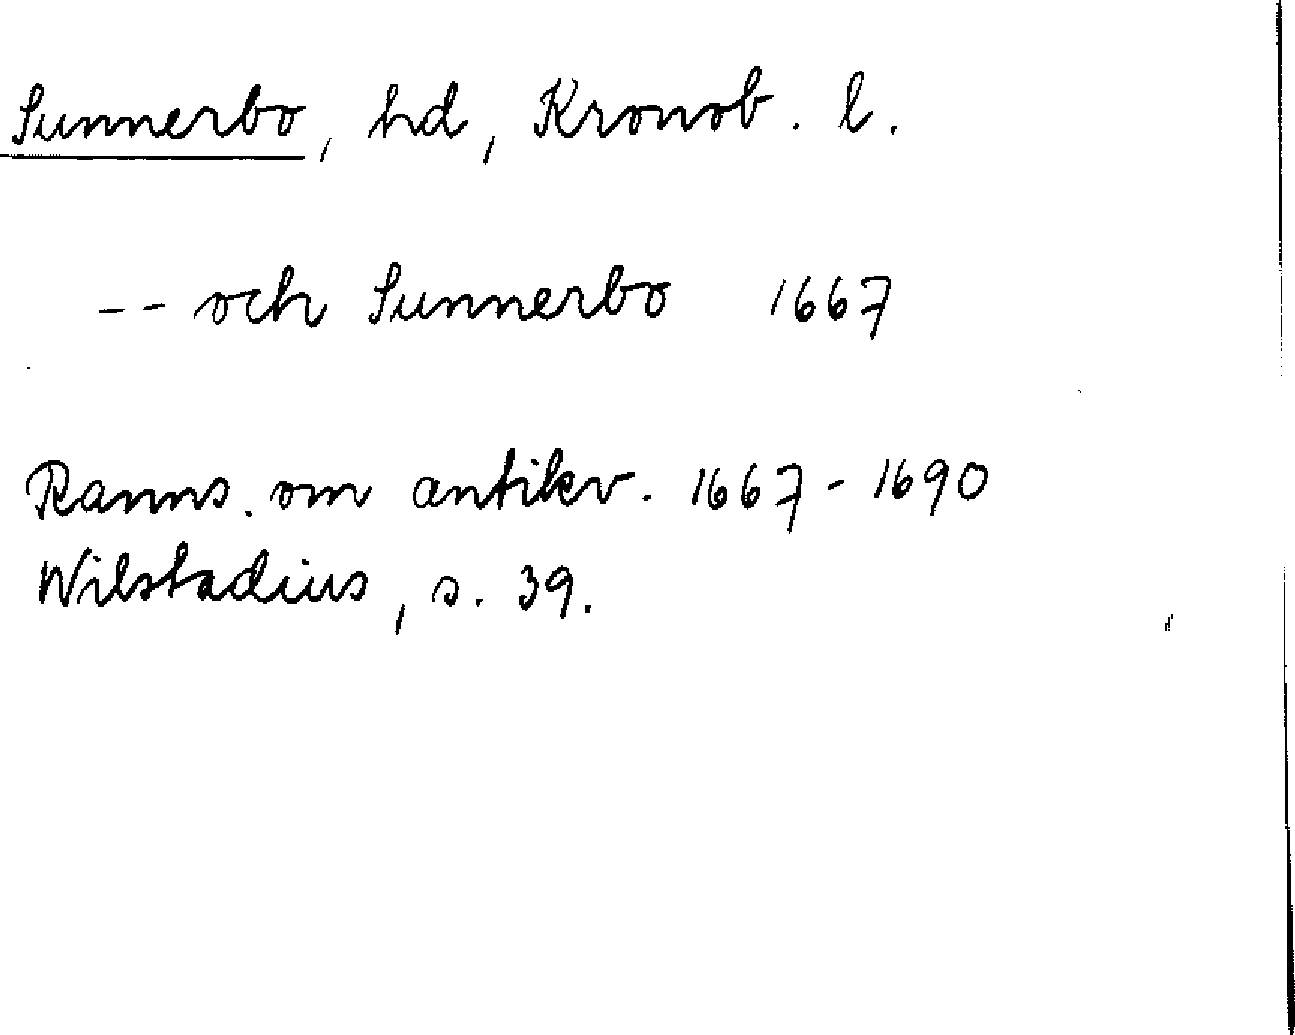 Sunnerbo, hd, Kronob. l.
-- och Sunnerbo 1667
Ranns. om antikv. 1667-1690
Wilstadius, s. 39.